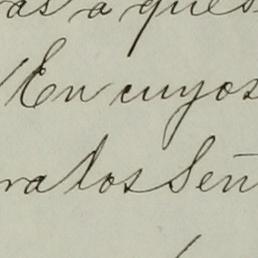 as a ques
En cuyos
ratos Señ